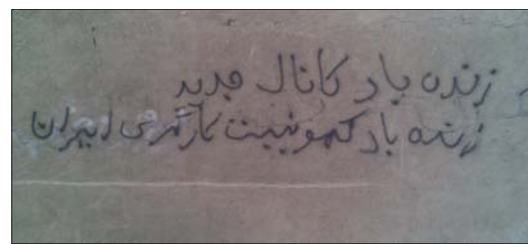 زنده باد کانال جدید
زنده باد کمونیست کارگری ایران